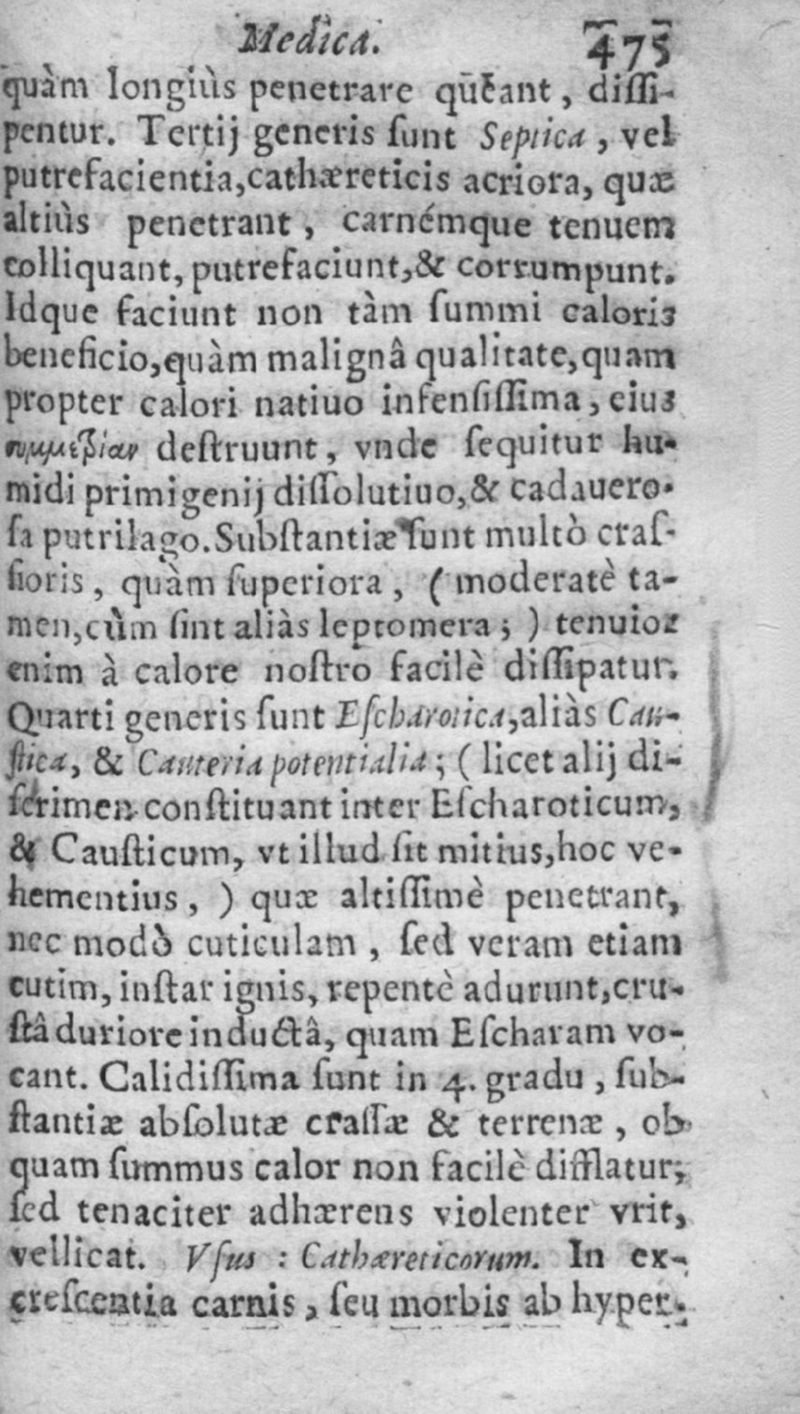 Medica. 475
quàm longiùs penetrare qūeant, diſſi-
pentur. Tertij generis ſunt Septica, vel
putrefacientia,cathæreticis acriora, quæ
altiùs penetrant, carnémque tenuem
colliquant, putrefaciunt,& corrumpunt.
Idque faciunt non tàm ſummi caloris
beneficio,quàm malignâ qualitate,quam
propter calori natiuo infenſiſſima, eius
deſtruunt, vnde ſequitur hu-
midi primigenij diſſolutiuo,& cadauero-
ſa putrilago.Subſtantiæ ſunt multò craſ-
ſioris, quàm ſuperiora, (moderatè ta-
men,cùm ſint aliàs leptomera; ) tenuior
enim à calore noſtro facilè diſſipatur.
Quarti generis ſunt Eſcharotica,aliàs Cau-
ſtica, & Cauteria potentialia; ( licet alij di-
ſcrimen conſtituant inter Eſcharoticum,
& Cauſticum, vt illud ſit mitius,hoc ve-
hementius, ) quæ altiſſimè penetrant,
nec modò cuticulam, ſed veram etiam
cutim, inſtar ignis, repentè adurunt,cru-
ſtâ duriore inductâ, quam Eſcharam vo-
cant. Calidiſſima ſunt in 4. gradu, ſub-
ſtantiæ abſolutæ craſſæ & terrenæ, ob
quam ſummus calor non facilè difflatur;
ſed tenaciter adhærens violenter vrit,
vellicat. Vſus : Cathæreticorum. In ex-
creſcentia carnis, ſeu morbis ab hyper-